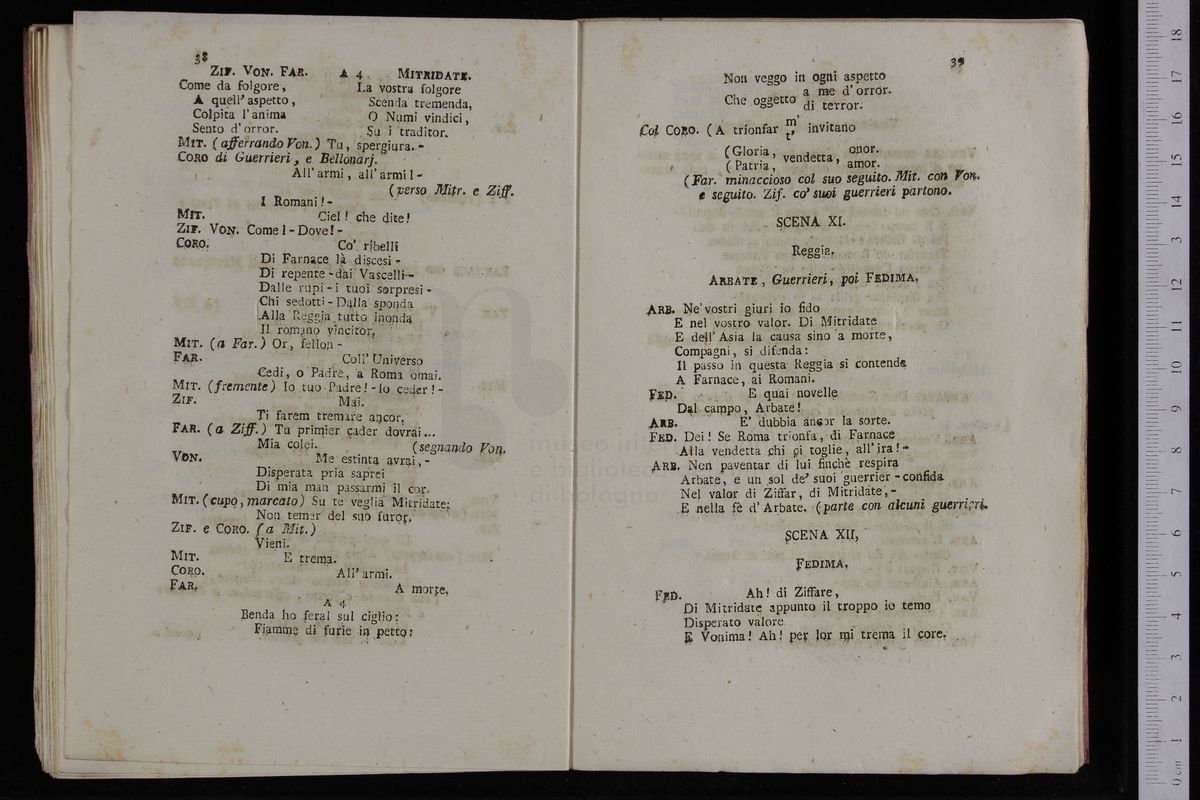 38
ZIF. VON. FAR. A 4 MITRIDATE.
Come da folgore, La vostra folgore
A quell' aspetto, Scenda tremenda,
Colpita l'anima O Numi vindici,
Sento d'orror. Su i traditor.
MIT. (afferrando Von.) Tu, spergiura.-
CORO di Guerrieri, e Bellonarj.
All' armi, all' armi!-
(verso Mitr. e Ziff.
I Romani!-
MIT. Ciel! che dite!
ZIF. VON. Come!-Dove!-
CORO. Co' ribelli
Di Farnace là discesi-
Di repente-dai Vascelli-
Dalle rupi-i tuoi sorpresi-
Chi sedotti-Dalla sponda
Alla Reggia tutto inonda
Il romano vincitor.
MIT. (a Far.) Or, fellon-
FAR. Coll' Universo
Cedi, o Padre, a Roma omai.
MIT. (fremente) Io tuo Padre!-Io ceder!-
ZIF. Mai.
Ti farem tremare ancor.
FAR. (a Ziff.) Tu primier cader dovrai...
Mia colei. (segnando Von.
VON. Me estinta avrai,-
Disperata pria saprei
Di mia man passarmi il cor.
MIT. (cupo, marcato) Su te veglia Mitridate:
Non temer del suo furor.
ZIF. e CORO. (a Mit.)
Vieni.
MIT. E trema.
CORO. All' armi.
FAR. A morte.
A 4
Benda ho feral sul ciglio:
Fiamme di furie in petto:
39
Non veggo in ogni aspetto
Che oggetto a me d'orror.
di terror.
Col CORO. (A trionfar m' invitano
t'
(Gloria, vendetta, onor.
(Patria, amor.
(Far. minaccioso col suo seguito. Mit. con Von.
e seguito. Zif. co' suoi guerrieri partono.
SCENA XI.
Reggia.
ARBATE, Guerrieri, poi FEDIMA.
ARB. Ne' vostri giuri io fido
E nel vostro valor. Di Mitridate
E dell' Asia la causa sino a morte,
Compagni, si difenda:
Il passo in questa Reggia si contenda
A Farnace, ai Romani.
FED. E quai novelle
Dal campo, Arbate!
ARB. E' dubbia ancor la sorte.
FED. Dei! Se Roma trionfa, di Farnace
Alla vendetta chi ci toglie, all' ira!-
ARB. Non paventar di lui finchè respira
Arbate, e un sol de' suoi guerrier-confida
Nel valor di Ziffar, di Mitridate,-
E nella fè d' Arbate. (parte con alcuni guerrieri.
SCENA XII,
FEDIMA.
FED. Ah! di Ziffare,
Di Mitridate appunto il troppo io temo
Disperato valore
E Vonima! Ah! per lor mi trema il core.